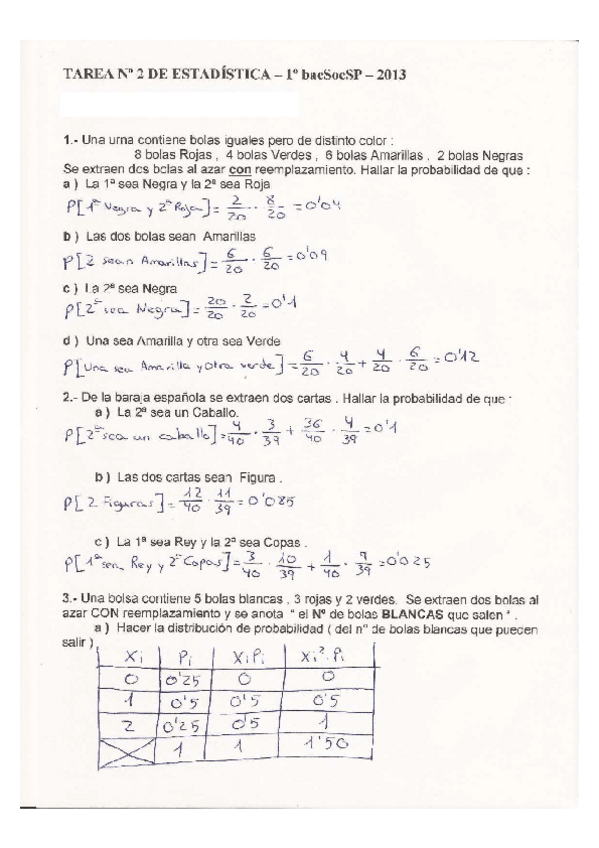 TAREA Nº 2 DE ESTADÍSTICA – 1º bacSocSP – 2013
1.- Una urna contiene bolas iguales pero de distinto color :
8 bolas Rojas , 4 bolas Verdes , 6 bolas Amarillas , 2 bolas Negras
Se extraen dos bolas al azar con reemplazamiento. Hallar la probabilidad de que :
a ) La 1ª sea Negra y la 2ª sea Roja
P[1ª Negra y 2ª Roja] = 2/20 · 8/20 = 0'04
b ) Las dos bolas sean Amarillas
P[2 sean Amarillas] = 6/20 · 6/20 = 0'09
c ) La 2ª sea Negra
P[2ª sea Negra] = 20/20 · 2/20 = 0'1
d ) Una sea Amarilla y otra sea Verde
P[Una sea Amarilla y Otra verde] = 6/20 · 4/20 + 4/20 · 6/20 = 0'12
2.- De la baraja española se extraen dos cartas . Hallar la probabilidad de que :
a ) La 2ª sea un Caballo.
P[2ª sea un caballo] = 4/40 · 3/39 + 36/40 · 4/39 = 0'1
b ) Las dos cartas sean Figura .
P[2 Figuras] = 12/40 · 11/39 = 0'085
c ) La 1ª sea Rey y la 2ª sea Copas .
P[1ª sea Rey y 2ª Copas] = 3/40 · 10/39 + 1/40 · 9/39 = 0'025
3.- Una bolsa contiene 5 bolas blancas , 3 rojas y 2 verdes. Se extraen dos bolas al
azar CON reemplazamiento y se anota " el Nº de bolas BLANCAS que salen " .
a ) Hacer la distribución de probabilidad ( del nº de bolas blancas que pueden
salir )
Xi Pi XiPi Xi²·Pi
0 0'25 0 0
1 0'5 0'5 0'5
2 0'25 0'5 1
1 1 1'50